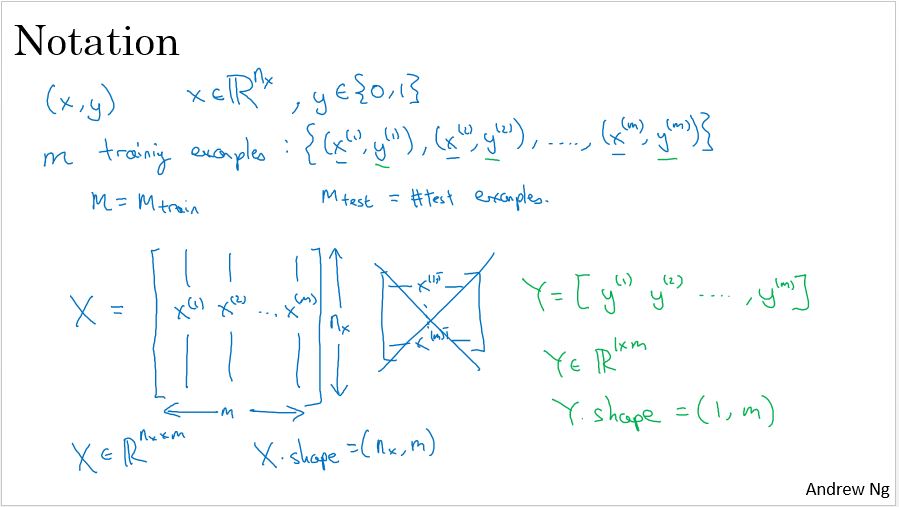 Notation
(x,y) x∈ℝ^{n_x}, y∈{0,1}
m trainig examples : {(x^{(1)}, y^{(1)}), (x^{(2)}, y^{(2)}), ...., (x^{(m)}, y^{(m)})}
M = M_{train} M_{test} = #test examples.
X = [ x^{(1)} x^{(2)} ... x^{(m)} ] n_x
m
x^{(1)T}
x^{(m)T}
Y = [ y^{(1)} y^{(2)} .... , y^{(m)} ]
Y∈ ℝ^{1×m}
Y.shape = (1, m)
X ∈ ℝ^{n_x×m} X.shape = (n_x, m)
Andrew Ng